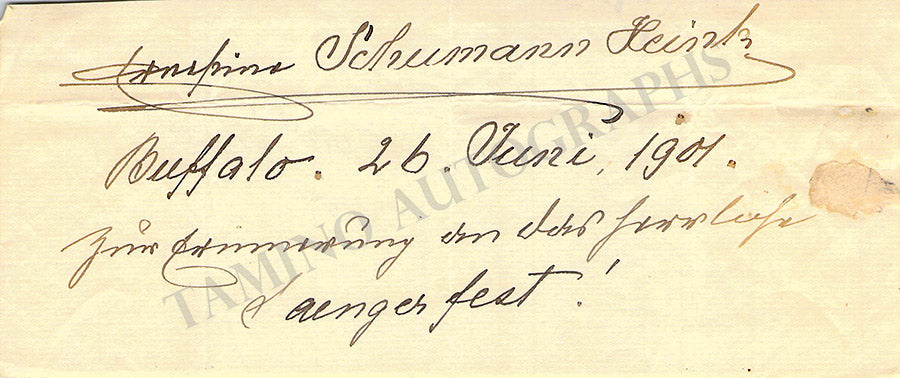 Ernestine Schumann Heink
Buffalo. 26. Juni, 1901.
Zur Erinnerung an das herrliche
Saengerfest!
TAMINO AUTOGRAPHS